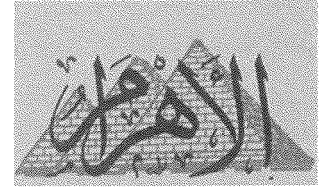 الاهرام